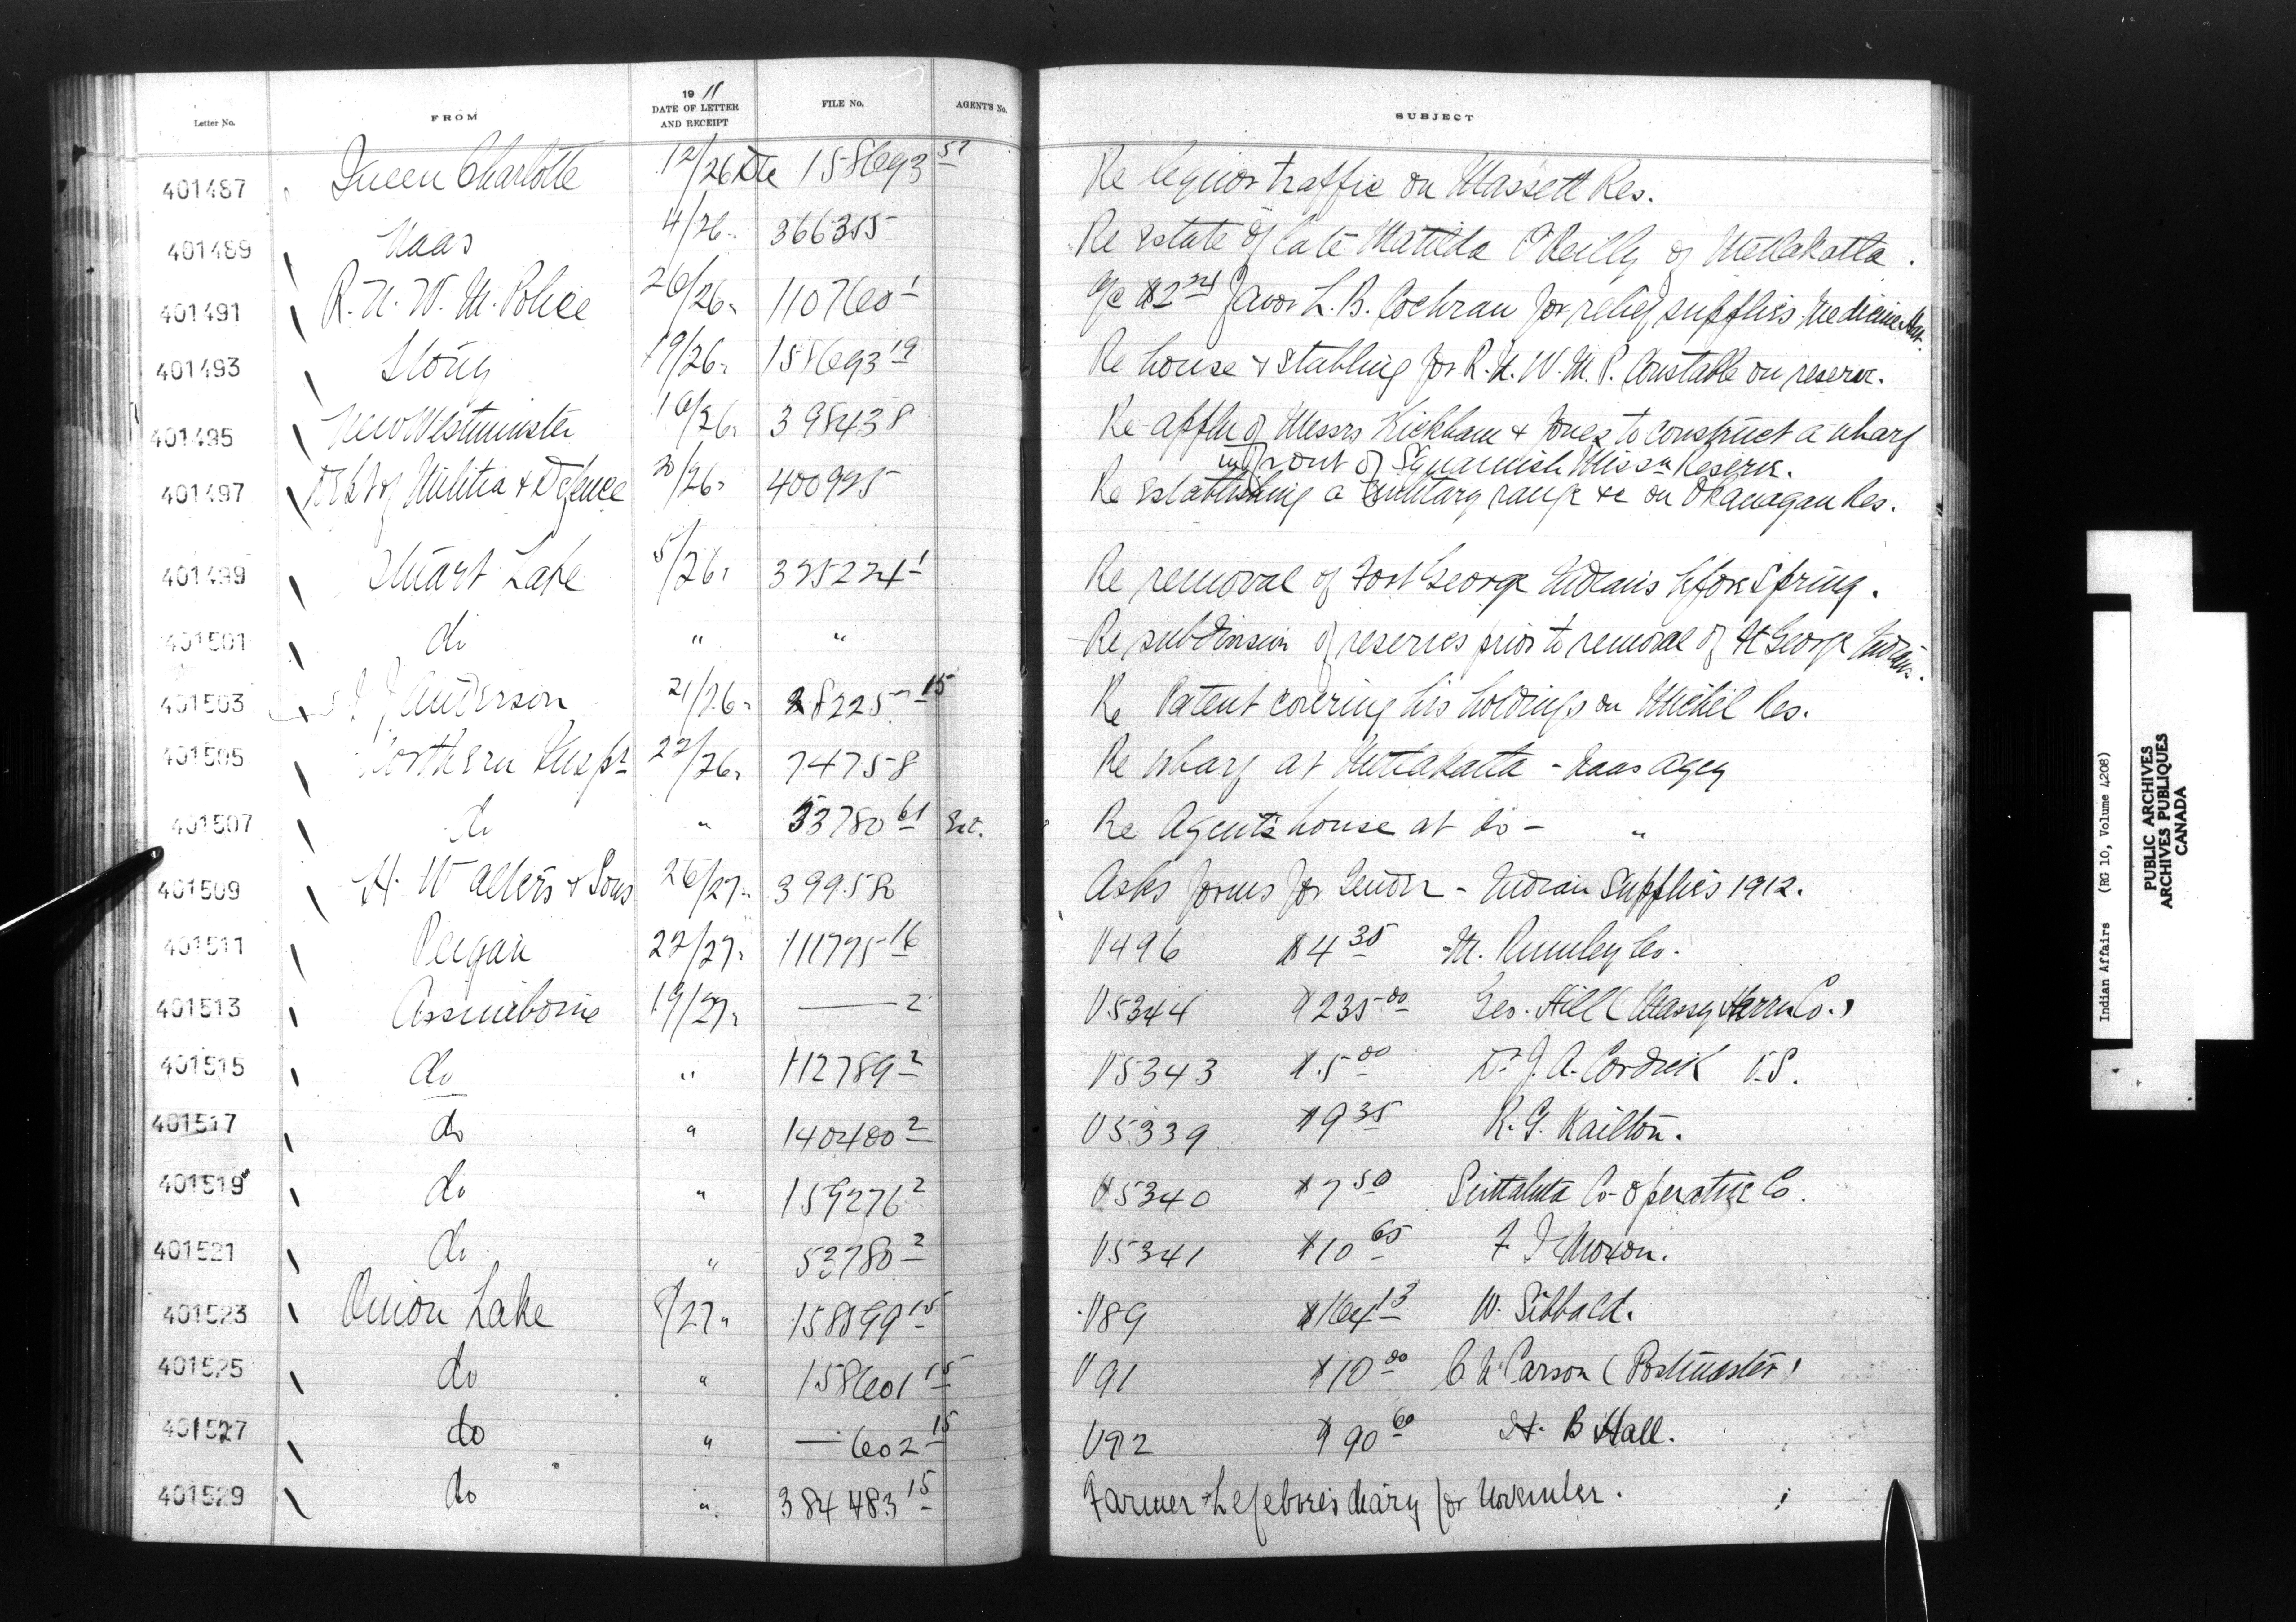 Letter No. FROM 19 11 DATE OF LETTER AND RECEIPT FILE No. AGENT'S No. SUBJECT
401487 Queen Charlotte 12/26 De 158693 57 Re liquor traffic on Massett Res.
401489 Naas 4/26 366355 Re estate of late Matilda O'Reilly of Metlakatla.
401491 R.N.W.M. Police 26/26 110760 1 a/c $2 favor L.B. Cochran for relief supplies Medicine Hat.
401493 Stony 19/26 158693 19 Re house & stabling for R.N.W.M.P. Constable on reserve.
401495 New Westminster 16/26 398438 Re appln of Messrs Kickham & Jones to construct a wharf
in front of Squamish Missn Reserve.
401497 Dept of Militia & Defence 20/26 400995 Re establishing a military range &c on Okanagan Res.
401499 Stuart Lake 5/26 395224 1 Re removal of Fort George Indians before Spring.
401501 do " " Re subdivision of reserves prior to removal of Ft George Indians.
401503 Anderson 21/26 28225 15 Re Patent covering his holdings on Michel Res.
401505 Northern Inspr 22/26 74758 Re wharf at Metlakatla - Naas Agcy
401507 do " 53780 61 Re Agent's house at do - "
401509 H. Walters & Sons 26/27 399580 Asks forms for Tender - Indian Supplies 1912.
401511 Peigan 22/27 111775 16 V496 $4 35 M. Rumley Co.
401513 Assiniboine 19/27 — 2 V5344 $235 00 Geo. Hill (Massey Harris Co.)
401515 do " 112789 2 V5343 $5 00 Dr J.A. Cordick V.S.
401517 do " 140400 2 V5339 $9 35 R.G. Railton.
401519 do " 159276 2 V5340 $7 50 Sintaluta Co-operative Co.
401521 do " 53780 2 V5341 $10 65 F. J. Moxon.
401523 Onion Lake 8/27 158599 15 V89 $164 13 W. Sibbald.
401525 do " 158601 15 V91 $10 00 C N Carson (Postmaster)
401527 do " — 602 15 V92 $90 60 H. B Hall.
401529 do " 384483 15 Farmer Lefebvre's diary for November.
Indian Affairs (RG 10, Volume 4208)
PUBLIC ARCHIVES
ARCHIVES PUBLIQUES
CANADA